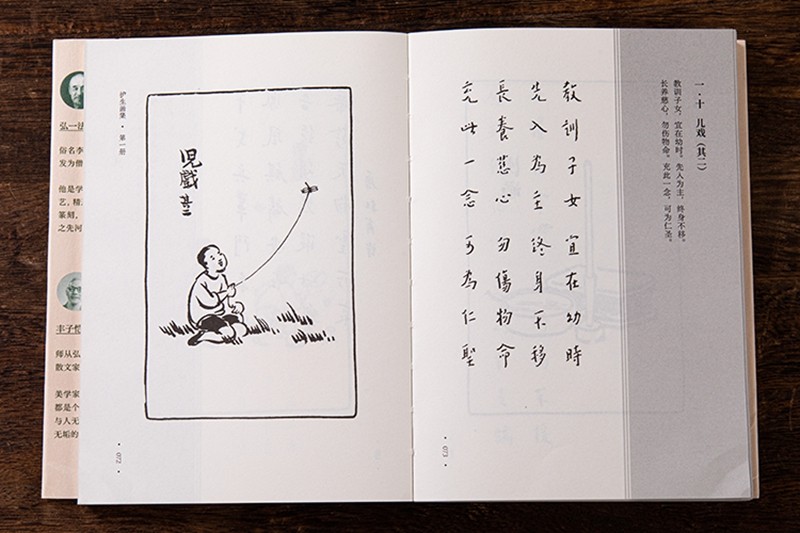 弘一法
俗名李
发为僧
他是学
艺，精
篆刻，
之先河
丰子恺
师从弘
散文家
美学家
都是个
与人无
无垢的
护生画集 · 第一册
兒戲其二
· 072 ·
一·十 儿戏（其二）
教训子女，宜在幼时。先入为主，终身不移。
长养慈心，勿伤物命。充此一念，可为仁圣。
教訓子女宜在幼時
先入為主終身不移
長養慈心勿傷物命
充此一念可為仁聖
· 073 ·